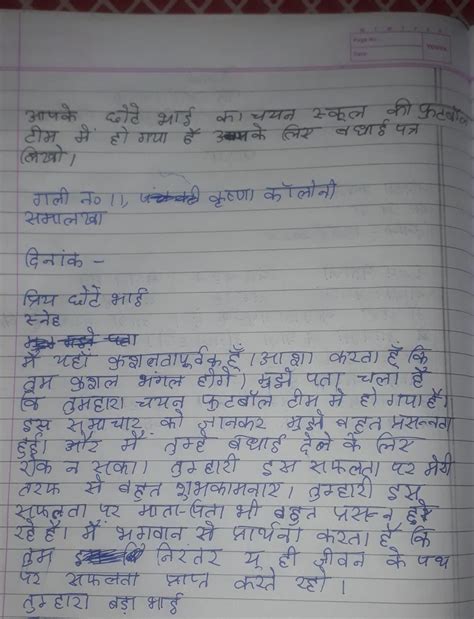 Page No.
Date
आपके छोटे भाई का चयन स्कूल की फुटबॉल
टीम में हो गया है उसके लिए बधाई पत्र
लिखो।
गली न० 11, कृष्णा कॉलोनी
समालखा
दिनांक -
प्रिय छोटे भाई
स्नेह
मैं यहाँ कुशलतापूर्वक हूँ। आशा करता हूँ कि
तुम कुशल मंगल होगे। मुझे पता चला है
कि तुमहारा चयन फुटबॉल टीम में हो गया है।
इस समाचार को जानकर मुझे बहुत प्रसन्नता
हुई। और मैं तुम्हे बधाई देने के लिए
रोक न सका। तुम्हारी इस सफलता पर मेरी
तरफ से बहुत शुभकामनाए। तुम्हारी इस
सफलता पर माता-पिता भी बहुत प्रसन्न हो
रहे हैं। मैं भगवान से प्रार्थना करता हूँ कि
तुम निरंतर यू ही जीवन के पथ
पर सफलता प्राप्त करते रहो।
तुम्हारा बड़ा भाई